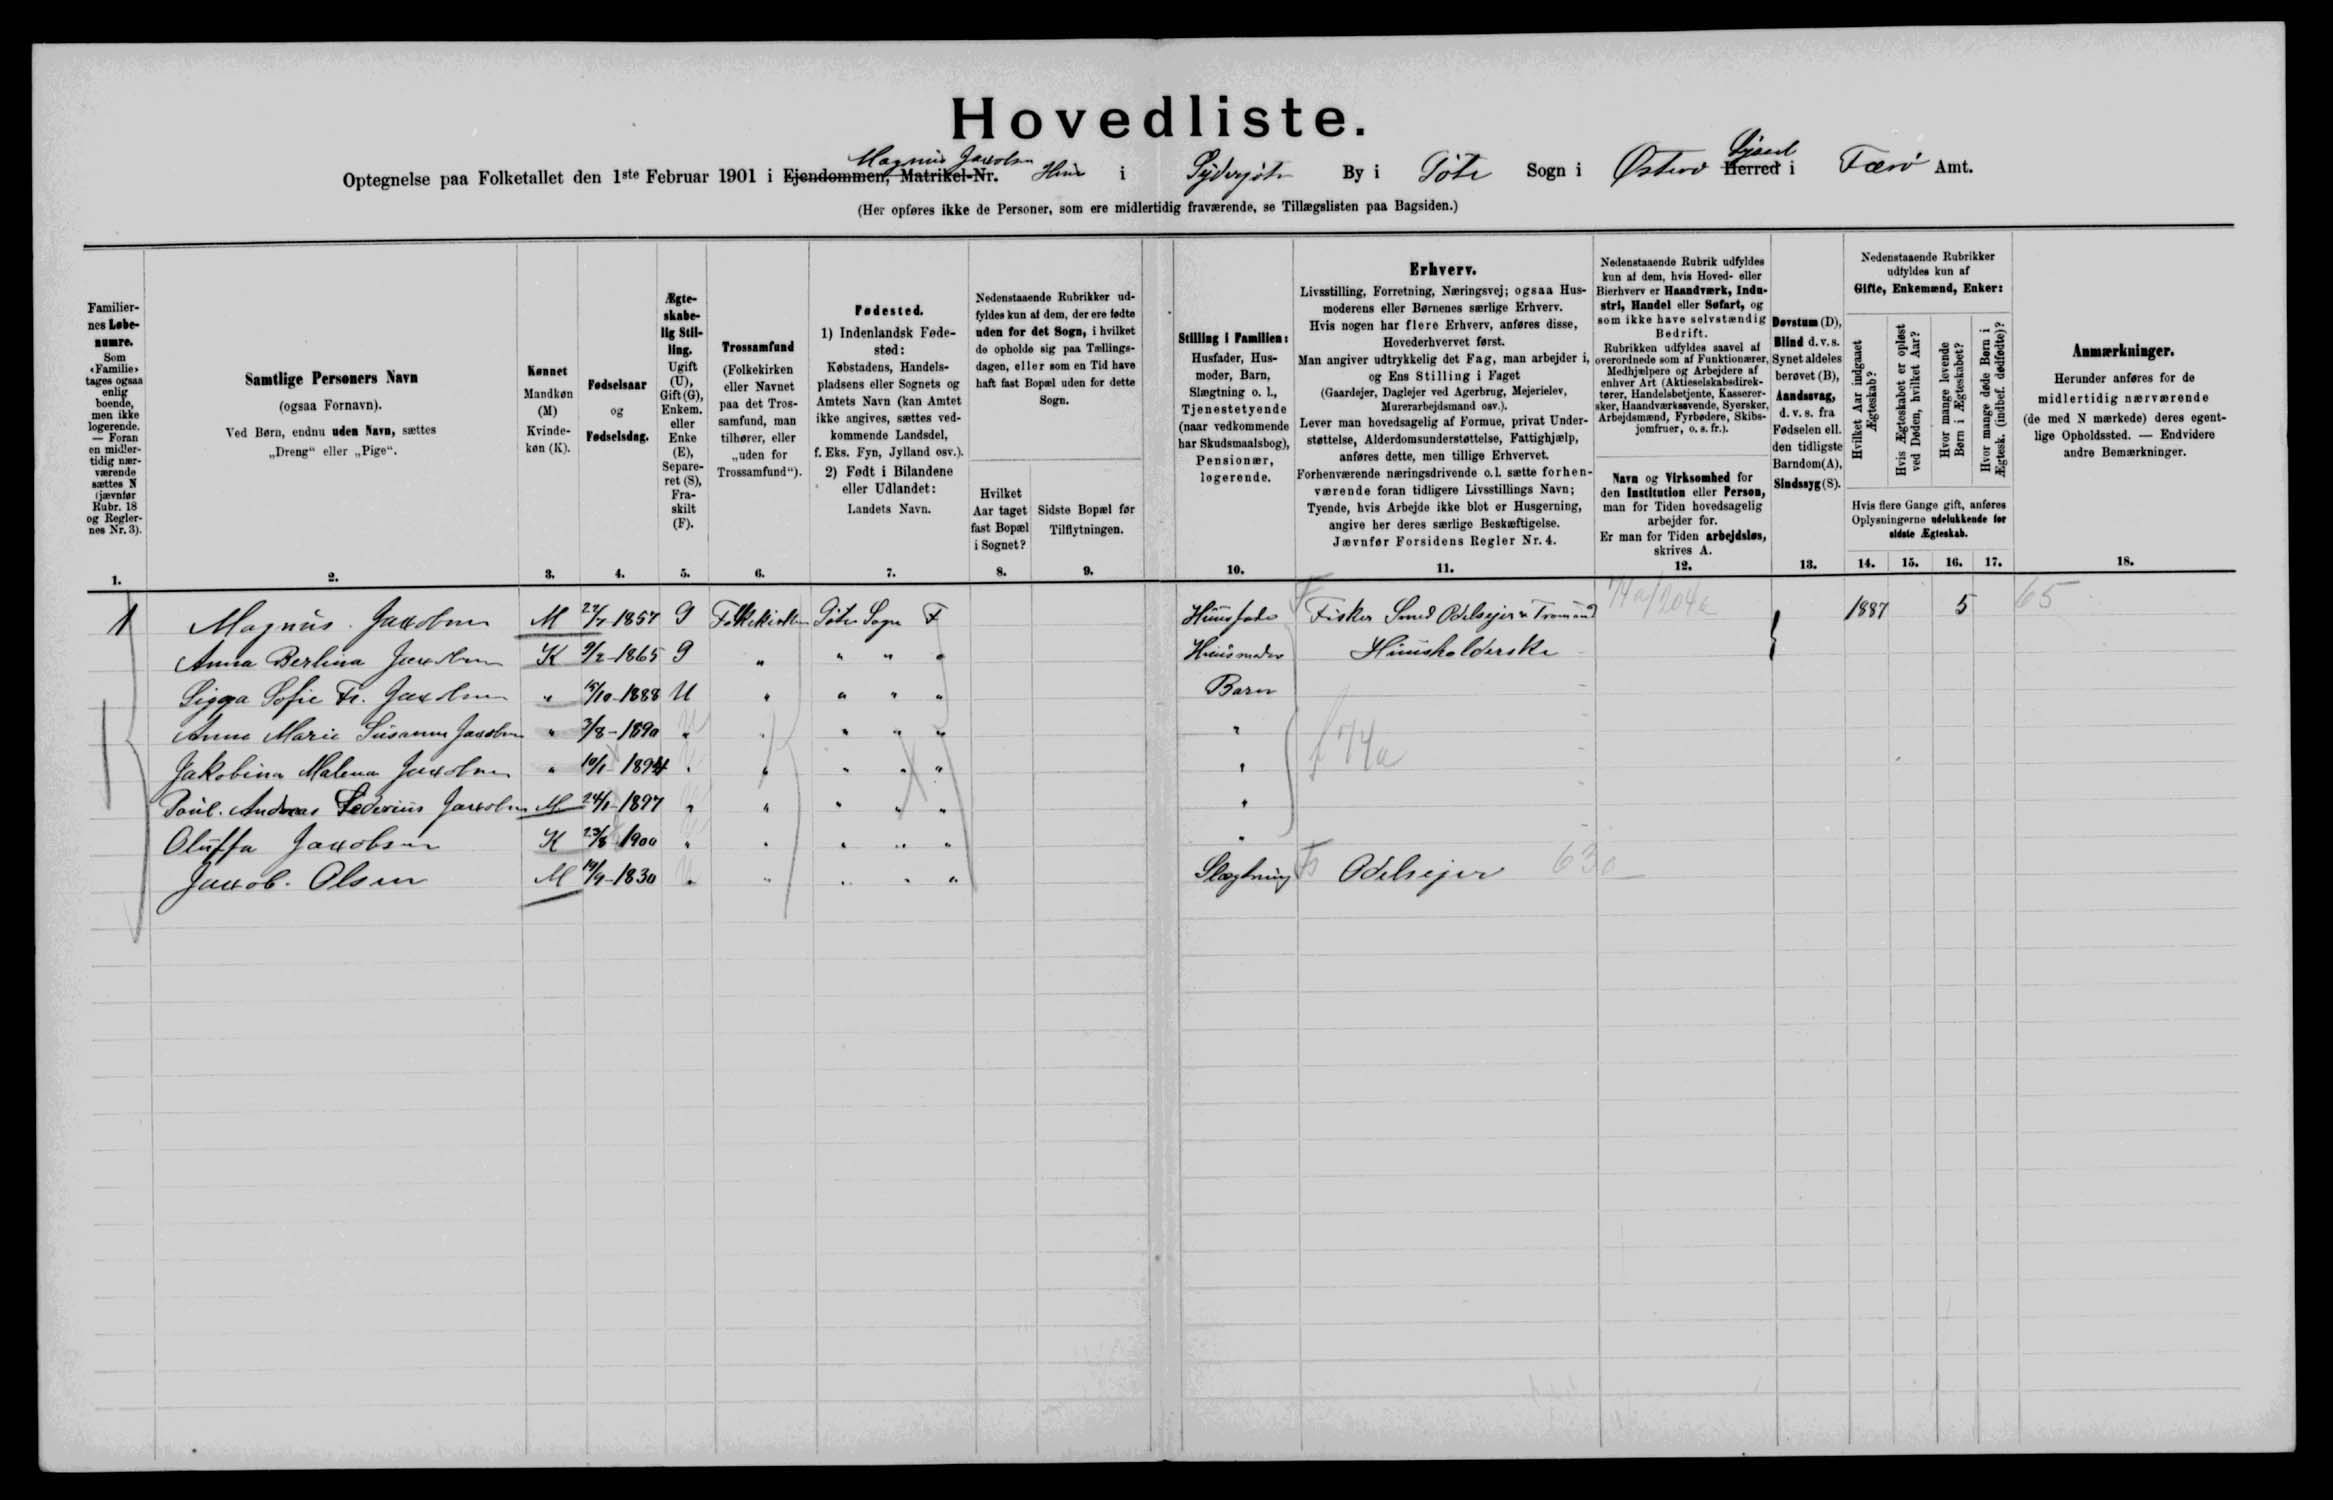 Hovedliste.
Optegnelse paa Folketallet den 1ste Februar 1901 i Ejendommen, Matrikel-Nr. Magnus Jacobsen Hus i Sydergöte By i Göte Sogn i Østerø Herred Sysel i Færö Amt.
(Her opføres ikke de Personer, som ere midlertidig fraværende, se Tillægslisten paa Bagsiden.)
Familiernes Løbenumre. Som «Familie» tages ogsaa enlig boende, men ikke logerende. — Foran en midlertidig nærværende sættes N (jævnfør Rubr. 18 og Reglernes Nr. 3).
Samtlige Personers Navn (ogsaa Fornavn). Ved Børn, endnu uden Navn, sættes „Dreng“ eller „Pige“.
Kønnet Mandkøn (M) Kvindekøn (K).
Fødselsaar og Fødselsdag.
Ægteskabelig Stilling. Ugift (U), Gift (G), Enkem. eller Enke (E), Separeret (S), Fraskilt (F).
Trossamfund (Folkekirken eller Navnet paa det Trossamfund, man tilhører, eller „uden for Trossamfund“).
Fødested. 1) Indenlandsk Fødested: Købstadens, Handelspladsens eller Sognets og Amtets Navn (kan Amtet ikke angives, sættes vedkommende Landsdel, f. Eks. Fyn, Jylland osv.). 2) Født i Bilandene eller Udlandet: Landets Navn.
Nedenstaaende Rubrikker udfyldes kun af dem, der ere fødte uden for det Sogn, i hvilket de opholde sig paa Tællingsdagen, eller som en Tid have haft fast Bopæl uden for dette Sogn.
Hvilket Aar taget fast Bopæl i Sognet?
Sidste Bopæl før Tilflytningen.
Stilling i Familien: Husfader, Husmoder, Barn, Slægtning o. l., Tjenestetyende (naar vedkommende har Skudsmaalsbog), Pensionær, logerende.
Erhverv.
Livsstilling, Forretning, Næringsvej; ogsaa Husmoderens eller Børnenes særlige Erhverv.
Hvis nogen har flere Erhverv, anføres disse, Hovederhvervet først.
Man angiver udtrykkelig det Fag, man arbejder i, og Ens Stilling i Faget
(Gaardejer, Daglejer ved Agerbrug, Mejerielev, Murerarbejdsmand osv.).
Lever man hovedsagelig af Formue, privat Understøttelse, Alderdomsunderstøttelse, Fattighjælp, anføres dette, men tillige Erhvervet.
Forhenværende næringsdrivende o. l. sætte forhenværende foran tidligere Livsstillings Navn;
Tyende, hvis Arbejde ikke blot er Husgerning, angive her deres særlige Beskæftigelse.
Jævnfør Forsidens Regler Nr. 4.
Nedenstaaende Rubrik udfyldes kun af dem, hvis Hoved- eller Bierhverv er Haandværk, Industri, Handel eller Søfart, og som ikke have selvstændig Bedrift.
Rubrikken udfyldes saavel af overordnede som af Funktionærer, Medhjælpere og Arbejdere af enhver Art (Aktieselskabsdirektører, Handelsbetjente, Kasserersker, Haandværkssvende, Syersker, Arbejdsmænd, Fyrbødere, Skibsjomfruer, o. s. fr.).
Navn og Virksomhed for den Institution eller Person, man for Tiden hovedsagelig arbejder for.
Er man for Tiden arbejdsløs, skrives A.
Døvstum (D), Blind d. v. s. Synet aldeles berøvet (B), Aandssvag, d. v. s. fra Fødselen ell. den tidligste Barndom (A), Sindssyg (S).
Nedenstaaende Rubrikker udfyldes kun af Gifte, Enkemænd, Enker:
Hvilket Aar indgaaet Ægteskab?
Hvis Ægteskabet er opløst ved Døden, hvilket Aar?
Hvor mange levende Børn i Ægteskabet?
Hvor mange døde Børn i Ægtesk. (indbef. dødfødte)?
Hvis flere Gange gift, anføres Oplysningerne udelukkende for sidste Ægteskab.
Anmærkninger. Herunder anføres for de midlertidig nærværende (de med N mærkede) deres egentlige Opholdssted. — Endvidere andre Bemærkninger.
1. 2. 3. 4. 5. 6. 7. 8. 9. 10. 11. 12. 13. 14. 15. 16. 17. 18.
1 Magnus Jacobsen M 27/7-1857 G Folkekirken Göte Sogn F Huusfader Fisker Smed Odelsejer 74a/204a 1887 5 65
Anna Berlina Jacobsen K 9/2-1865 G " " " " Huusmoder Huusholderske
Sigga Sofie Fr. Jacobsen " 15/10-1888 U " " " " Barn
Anne Marie Susanna Jacobsen " 3/8-1890 " " " " " "
Jakobina Malena Jacobsen " 10/1-1894 " " " " " " f 74a
Poul. Andreas Jacobsen M 24/1-1897 " " " " " "
Oluffa Jacobsen K 23/8-1900 " " " " " "
Jacob. Olsen M 19/9-1830 " " " " " Slægtning Odelsejer 63a